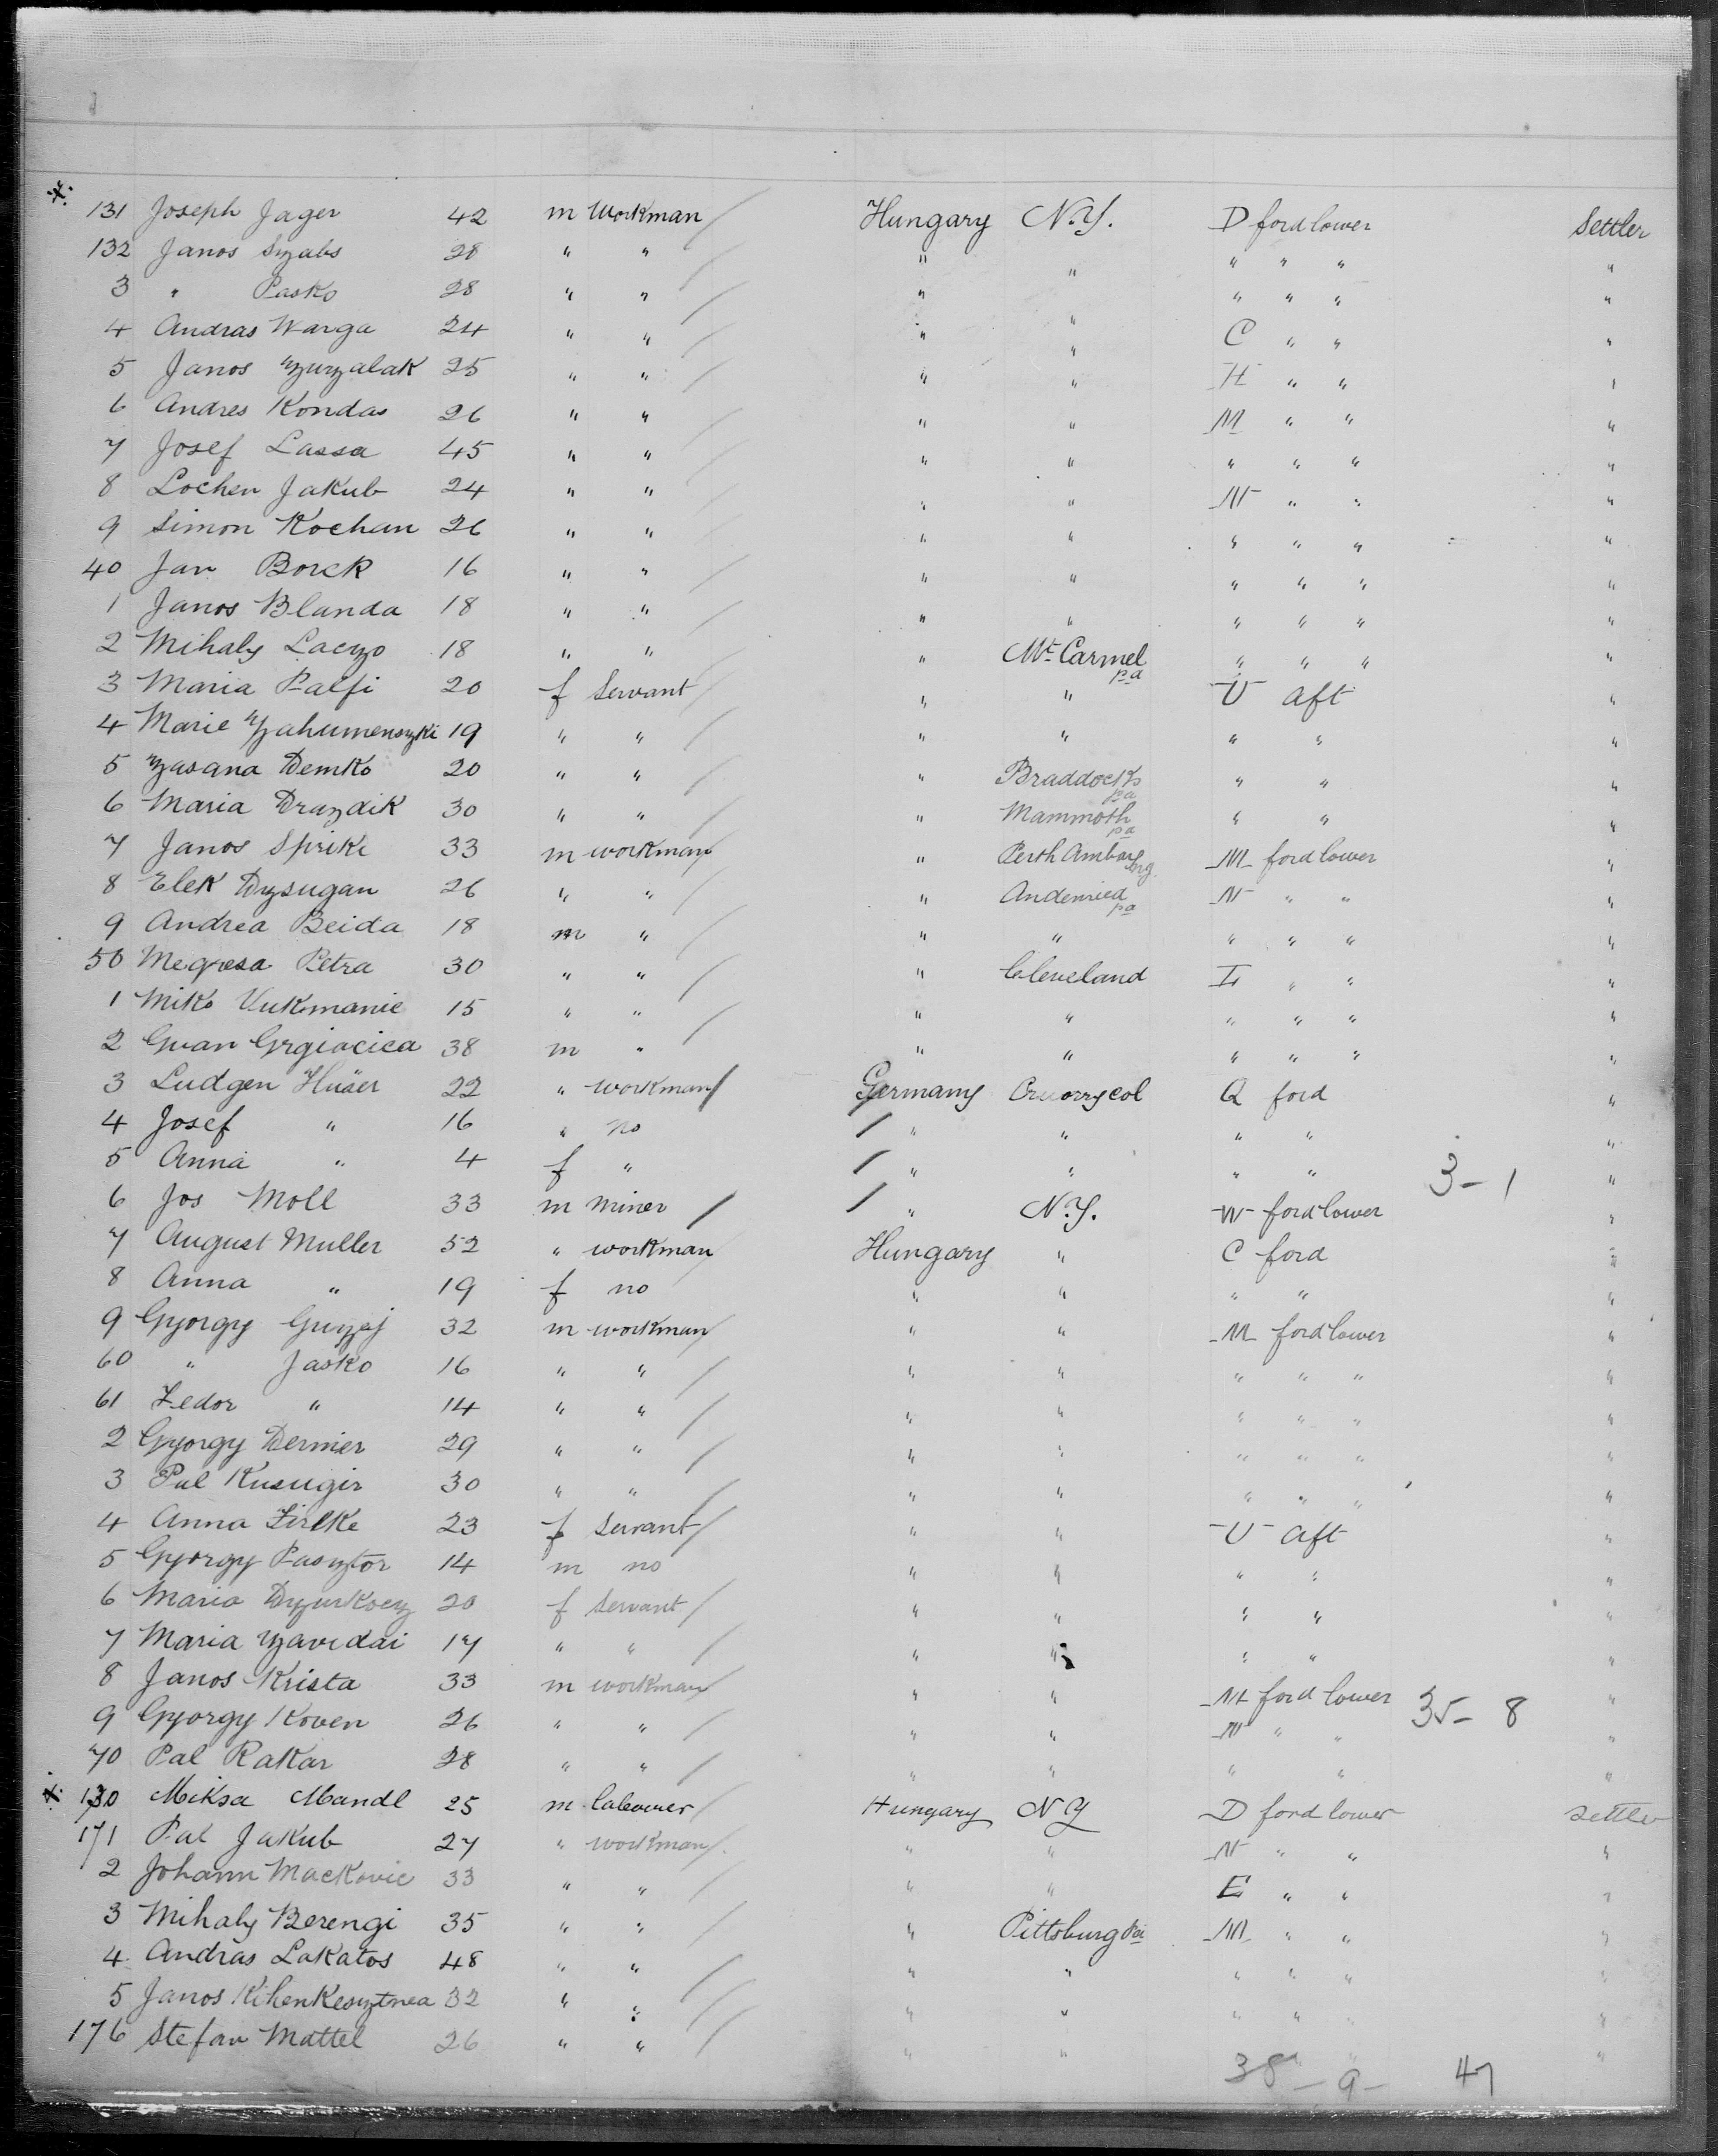 131 Joseph Jager 42 m Workman / Hungary N.Y. D ford lower Settler
132 Janos Szabs 28 " " / " " " " " "
3 " Pasko 28 " " / " " " " " "
4 Andras Warga 24 " " / " " C " " "
5 Janos Zzuzzalak 25 " " / " " H " " "
6 Andres Kondas 26 " " / " " M " " "
7 Josef Lassa 45 " " / " " " " " "
8 Lochen Jakub 24 " " / " " N " " "
9 Simon Kochan 26 " " / " " " " " "
40 Jan Borck 16 " " / " " " " " "
1 Janos Blanda 18 " " / " " " " " "
2 Mihaly Laczo 18 " " / " Mt Carmel pa " " " "
3 Maria Palfi 20 f Servant / " " U aft "
4 Marie Zahumenszki 19 " " / " " " " "
5 Zasana Demko 20 " " / " Braddocks pa " " "
6 Maria Drazdik 30 " " / " Mammoth pa " " "
7 Janos Spirike 33 m workman / " Perth Amboy M ford lower "
8 Elek Dzsugan 26 " " / " Andenried pa N " " "
9 Andrea Beida 18 m " / " " " " " "
50 Megvesa Petra 30 " " / " Cleveland I " " "
1 Miko Vukmanic 15 " " " " " " " "
2 Gvan Grgiacica 38 m " / " " " " " "
3 Ludgen Hüser 22 " workman / Germany col Q ford "
4 Josef " 16 " no / " " " " "
5 Anna " 4 f " / " " " " 3-1 "
6 Jos Moll 33 m miner / / " N.Y. W ford lower "
7 August Muller 52 " workman Hungary " C ford "
8 Anna " 19 f no " " " " "
9 Gyorgy Guzzej 32 m workman / " " M ford lower "
60 " Jasko 16 " " / " " " " " "
61 Fedor " 14 " " / " " " " " "
2 Gyorgy Dernier 29 " " / " " " " " "
3 Pal Kusugir 30 " " / " " " " " "
4 Anna Firlke 23 f Servant / " " U aft "
5 Gyorgy Pasztor 14 m no " " " " "
6 Maria Dzurkocz 20 f Servant / " " " " "
7 Maria Zavidai 17 " " / " " " " "
8 Janos Krista 33 m workman / " " M ford lower "
9 Gyorgy Koven 26 " " / " " N " " 35-8 "
70 Pal Rakar 28 " " / " " " " "
130 Miksa Mandl 25 m Labourer / Hungary NY D ford lower Settler
171 Pal Jakub 27 " workman / " " N " " "
2 Johann Mackovic 33 " " / " " E " " "
3 Mihaly Berengi 35 " " / " Pittsburg Pa M " " "
4 Andras Lakatos 48 " " / " " " " " "
5 Janos Kihenkesztnea 32 " " / " " " " "
176 Stefan Mattel 26 " " / " " "
38-9- 47